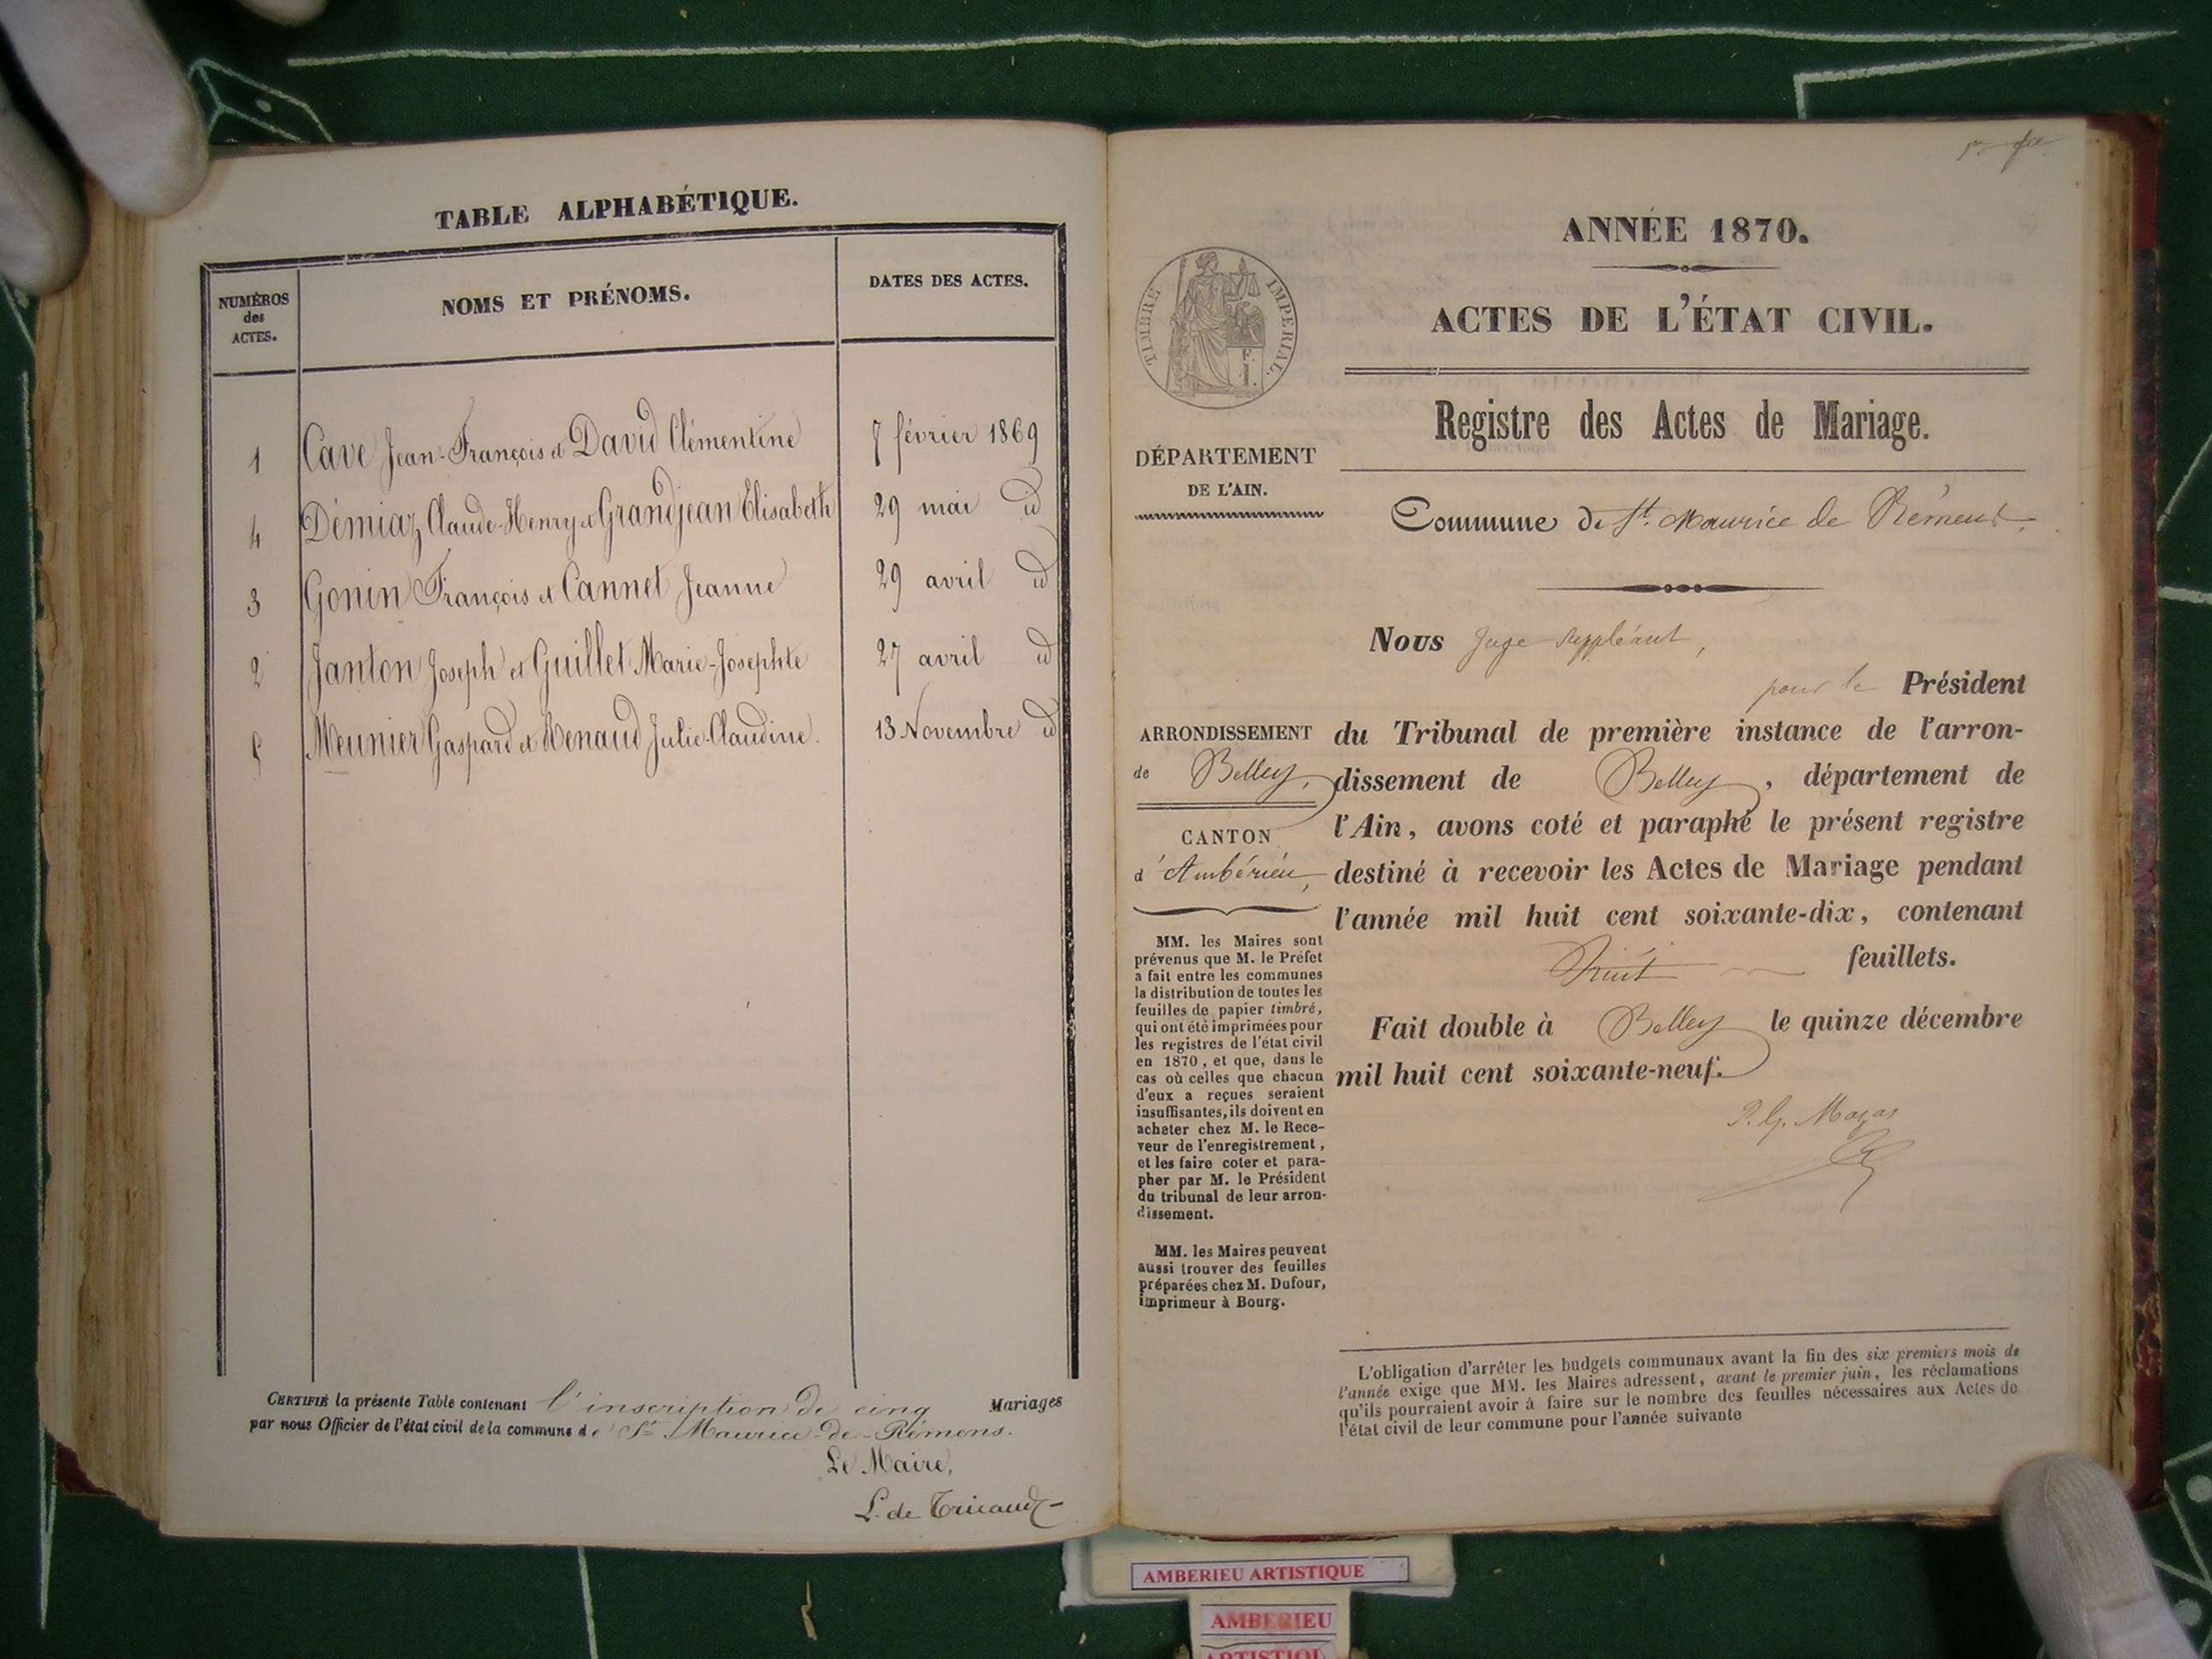 TABLE ALPHABÉTIQUE.
NUMÉROS des ACTES.
NOMS ET PRÉNOMS.
DATES DES ACTES.
1 Cave Jean-François et David Clémentine 7 février 1869
4 Démiaz Claude-Henry et Grandjean Elisabeth 29 mai id
3 Gonin François et Cannet Jeanne 29 avril id
2 Janton Joseph et Guillet Marie-Josephte 27 avril id
5 Meunier Gaspard et Renaud Julie-Claudine. 13 Novembre id
CERTIFIÉ la présente Table contenant l'inscription de cinq Mariages
par nous Officier de l'état civil de la commune de St Maurice-de-Rémens.
Le Maire,
L. de Tricaud
ANNÉE 1870.
ACTES DE L'ÉTAT CIVIL.
TIMBRE IMPERIAL.
Registre des Actes de Mariage.
DÉPARTEMENT
DE L'AIN.
Commune de St. Maurice de Rémens.
ARRONDISSEMENT
de Belley,
CANTON
d'Ambérieu,
MM. les Maires sont
prévenus que M. le Préfet
a fait entre les communes
la distribution de toutes les
feuilles de papier timbré,
qui ont été imprimées pour
les registres de l'état civil
en 1870, et que, dans le
cas où celles que chacun
d'eux a reçues seraient
insuffisantes, ils doivent en
acheter chez M. le Rece-
veur de l'enregistrement,
et les faire coter et para-
pher par M. le Président
du tribunal de leur arron-
dissement.
MM. les Maires peuvent
aussi trouver des feuilles
préparées chez M. Dufour,
imprimeur à Bourg.
Nous Juge suppléant,
pour le Président
du Tribunal de première instance de l'arron-
dissement de Belley, département de
l'Ain, avons coté et paraphé le présent registre
destiné à recevoir les Actes de Mariage pendant
l'année mil huit cent soixante-dix, contenant
huit feuillets.
Fait double à Belley le quinze décembre
mil huit cent soixante-neuf.
L'obligation d'arrêter les budgets communaux avant la fin des six premiers mois de
l'année exige que MM. les Maires adressent, avant le premier juin, les réclamations
qu'ils pourraient avoir à faire sur le nombre des feuilles nécessaires aux Actes de
l'état civil de leur commune pour l'année suivante
AMBERIEU ARTISTIQUE
AMBERIEU